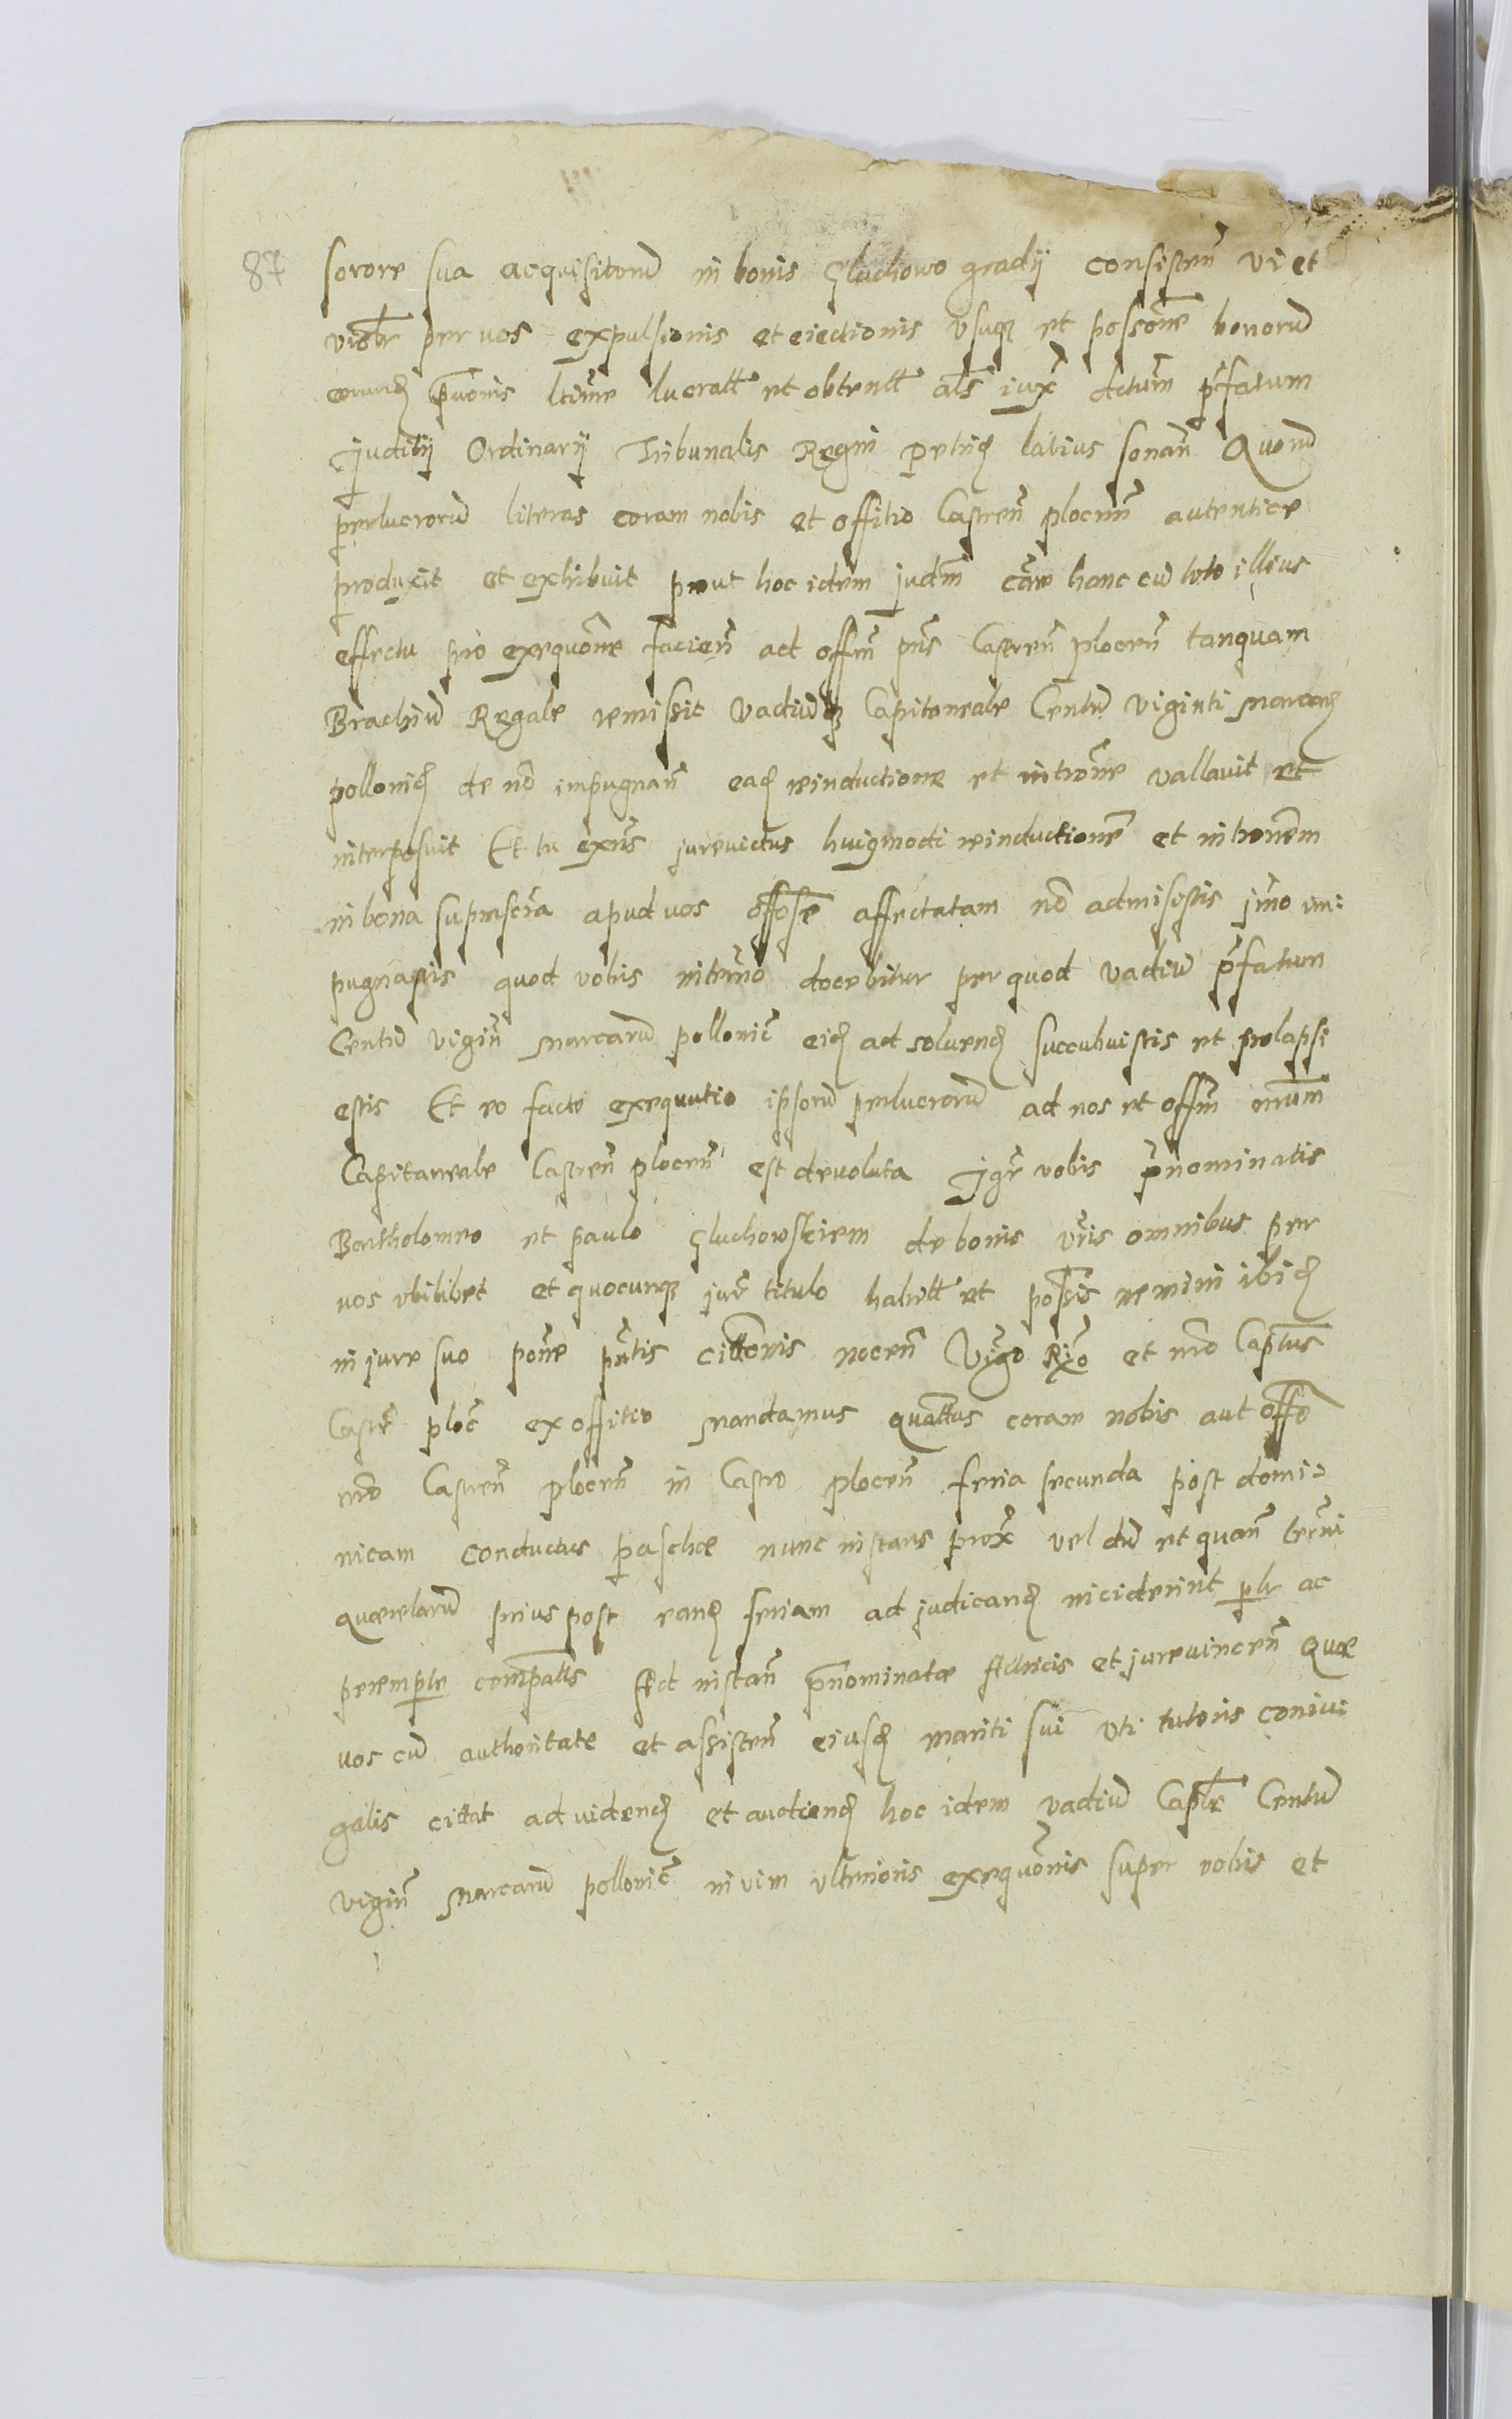 87 sorore sua acquisitorũ in bonis Gluchowo gradij consisteñ vi et
violr̃ per vos expulsionis et eiectionis vsuqꝫ et possoñe bonorũ
eorund̃ pruonis ltime lucratt et obtentt als iux̃ dctum p̃fatum
Juditij Ordinarij Tribunalis Regni petric̃ latius sonañ Quorũ
perlucrorũ literas coram nobis et offitio Castreñ ploceñ autentice
produxit et exhibuit prout hoc idem judm̃ cãm hanc cũ toto illius
effectu pro exequoñe facieñ ad offm̃ pñs Castreñ ploceñ tanquam
Brachiũ Regale remissit Vadiũqꝫ Capitaneale Centũ viginti Marcar̃
pollonic̃ de nõ impugnañ ead̃ reinductione et introm̃e vallavit et
interposuit Et tu exñs jurevictus huigmodi reinductionẽ et intronem̃
in bona suprascr̃a apud vos offose affectatam nõ admisistis jmo im:
pugnastis quod vobis in termo docebitur per quod vadiũ p̃fatum
Centũ vigiñ Marcarũ pollonic̃ eid̃ ad soluend̃ succubuistis et prolapsi
estis Et eo facto exequutio ipsorũ perlucrorũ ad nos et offm̃ nrum̃
Capitaneale Castreñ ploceñ est devoluta Jgr̃ vobis p̃nominatis
Bartholomeo et paulo Gluchowskiem de bonis vr̃is omnibus per
vos vbilibet et quocunqꝫ jur̃ titulo habitt et possis nemini ibid̃
in jure suo poñe pñtis cittoñis noceñ Vigo Rixo et nr̃o Captus
Castr̃ ploc̃ ex offitio Mandamus quattus coram nobis aut offo
nr̃o Castreñ ploceñ in Castro ploceñ feria secunda post domi:
nicam conductus paschae nunc instans prox̃ vel dũ et quañ ter̃mi
quaerelarũ prius post eand̃ feriam ad judicand̃ inciderint pr̃ltr ac
peremptr̃e compaatts Ad instañ p̃nominatae Actricis et jurevinceñ Quae
vos cũ authoritate et assisteñ eiusd̃ mariti sui vti tutoris coniui
galis cittat ad vidend̃ et audiend̃ hoc idem vadiũ Captl̃e Centũ
vigiñ Marcarũ pollonic̃ in vim vlterioris exequoñis super vobis et